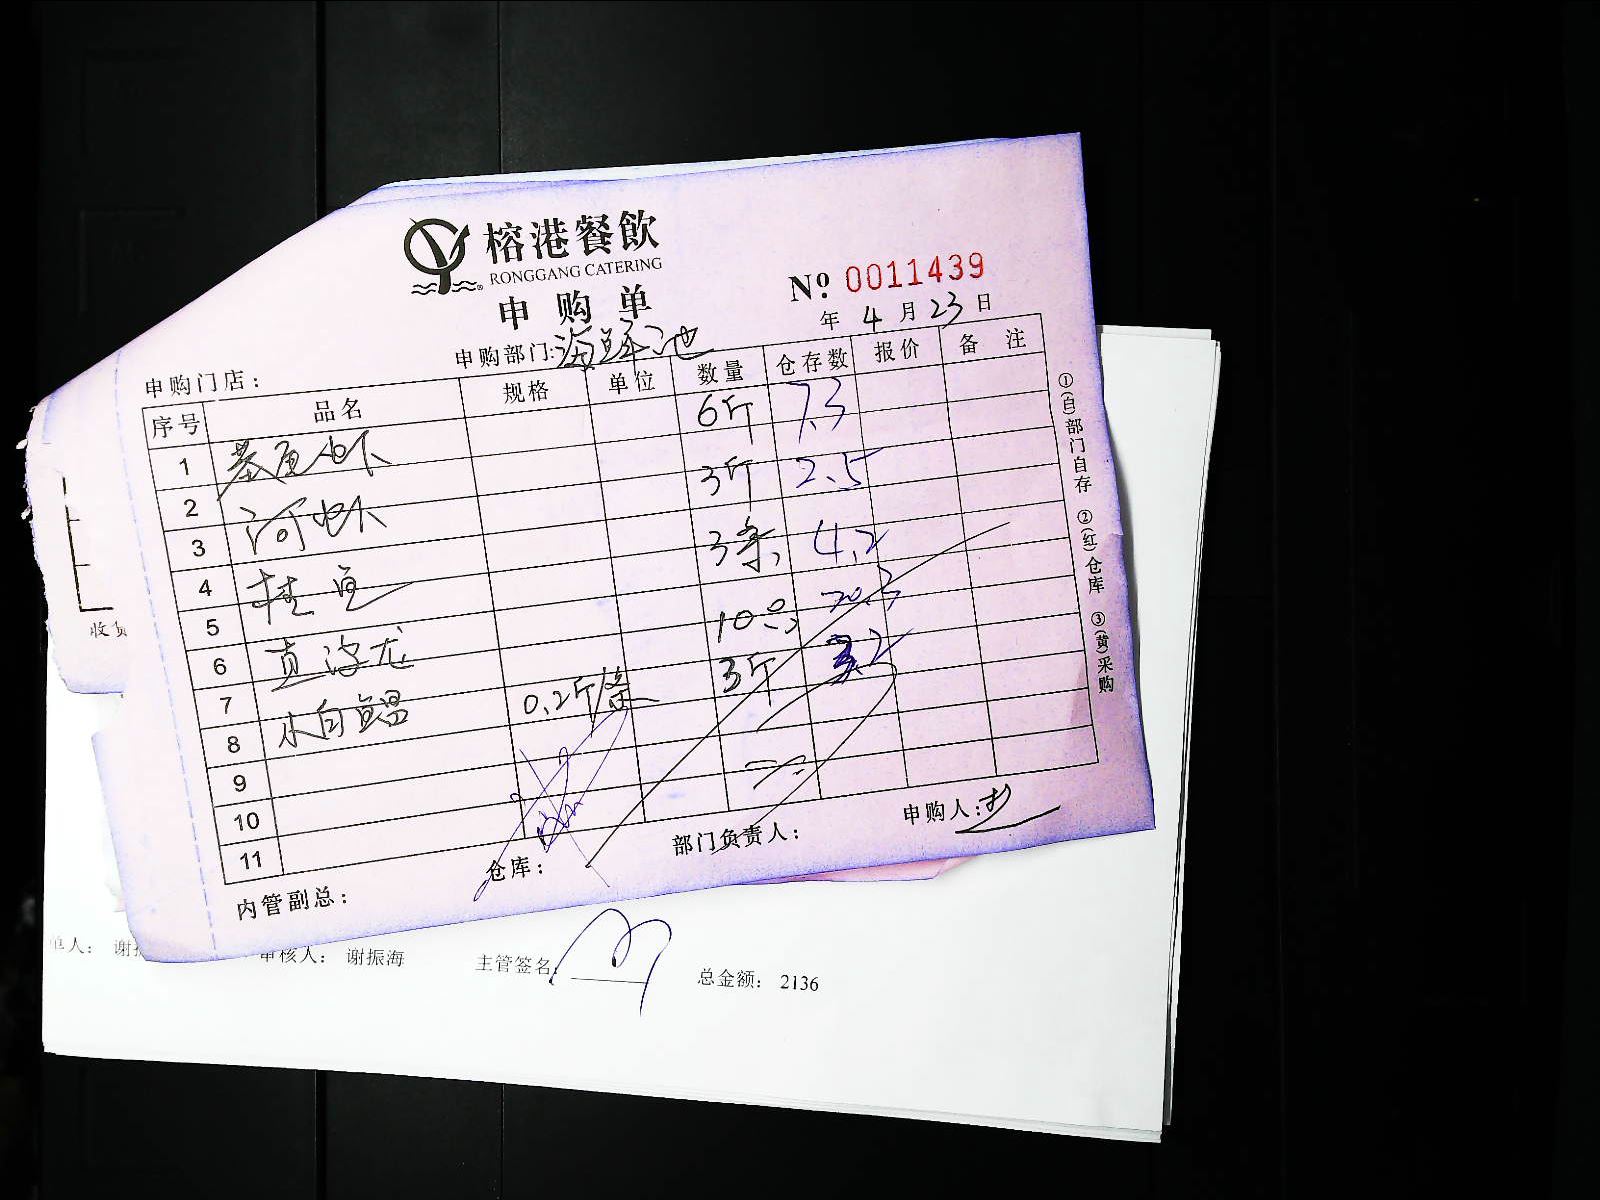 榕港餐飲
RONGGANG CATERING
申购单
№ 0011439
年 4 月 23 日
申购门店： 申购部门：海鲜池
序号 品名 规格 单位 数量 仓存数 报价 备注
1 基围虾 6斤 7.3
2
3 河虾 3斤 2.5
4
5 桂鱼 3条 4.2
6
7 10只
8 水白鱼昌 0.2斤/条 3斤 3.2
9
10
11
内管副总： 仓库： 部门负责人： 申购人：
①(白)部门自存 ②(红)仓库 ③(黄)采购
收货
单人： 谢振 审核人： 谢振海 主管签名： 总金额： 2136